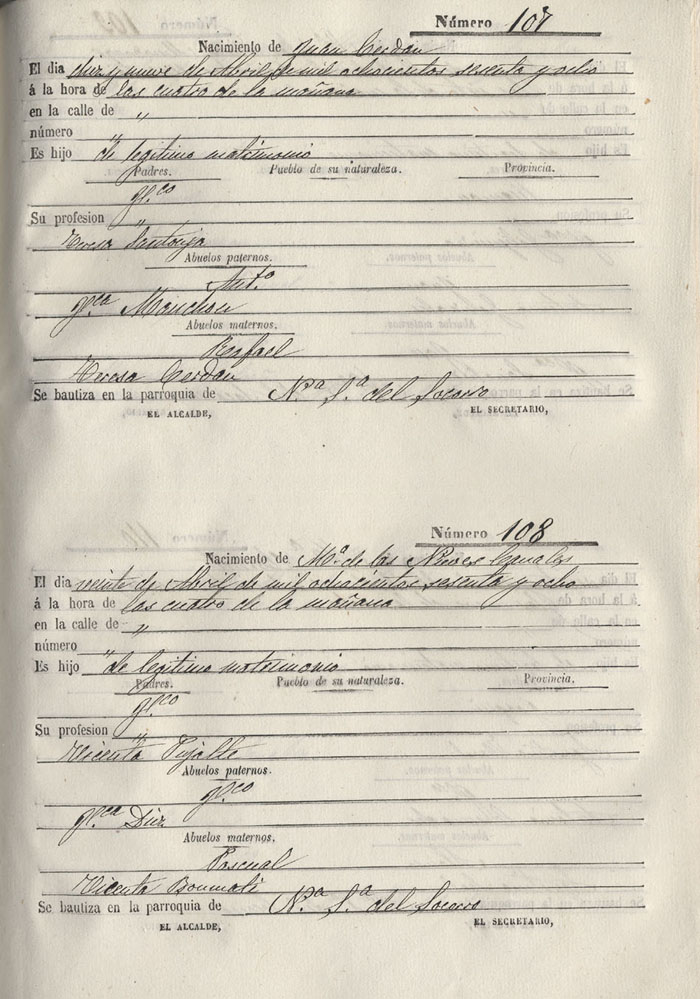 Número 107
Nacimiento de Juan Cerdan
El dia diez y nueve de Abril de mil ochocientos sesenta y ocho
á la hora de las cuatro de la mañana
en la calle de "
número "
Es hijo de legitimo matrimonio
Padres. Pueblo de su naturaleza. Provincia.
Su profesion "
Teresa Santonja
Abuelos paternos.
Ant.º
Monchon
Abuelos maternos.
Rafael
Teresa Cerdan
Se bautiza en la parroquia de N.ª S.ª del Socorro
EL ALCALDE, EL SECRETARIO,
Número 108
Nacimiento de M.ª de las Nieves
El dia veinte de Abril de mil ochocientos sesenta y ocho
á la hora de las cuatro de la mañana
en la calle de "
número "
Es hijo de legitimo matrimonio
Padres. Pueblo de su naturaleza. Provincia.
Su profesion "
Vicenta Pujalte
Abuelos paternos.
Diez
Abuelos maternos.
Pascual
Vicenta Bonmati
Se bautiza en la parroquia de N.ª S.ª del Socorro
EL ALCALDE, EL SECRETARIO,